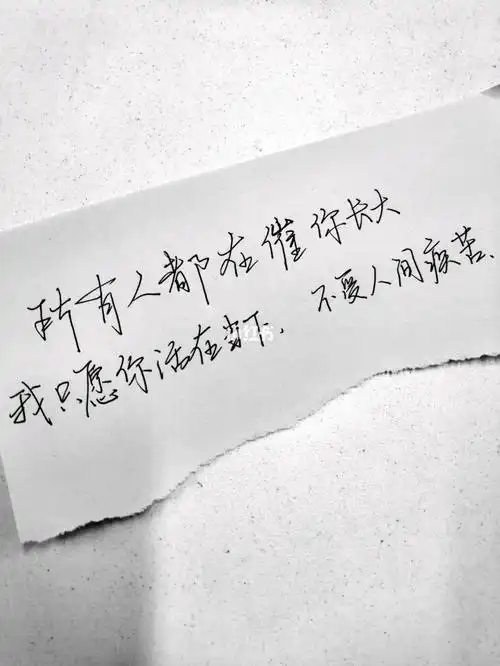 所有人都在催你长大
我只愿你活在当下、不受人间疾苦、
小红书